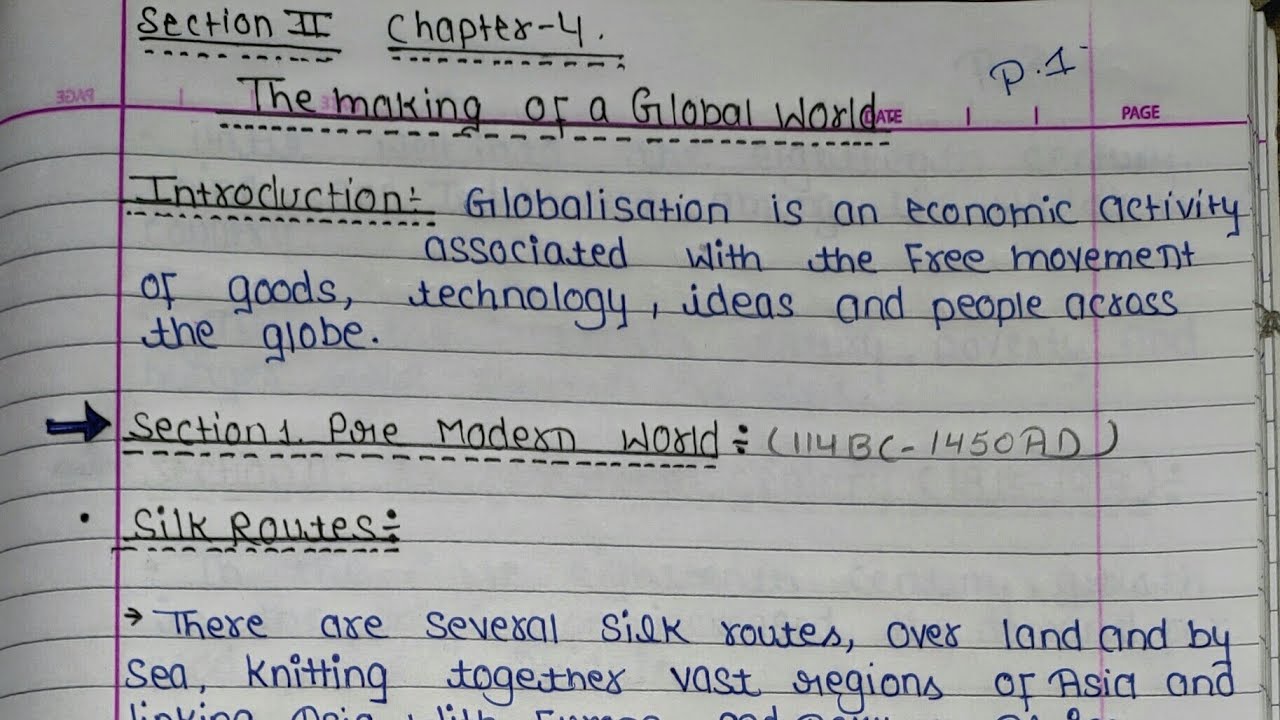 Section II Chapter-4.
P.1
The making of a Global World
DATE PAGE
PAGE
Introduction:- Globalisation is an economic activity
associated with the free movement
of goods, technology, ideas and people across
the globe.
→ Section 1. Pre Modern World :- (114BC-1450AD)
• Silk Routes:-
→ There are several silk routes, over land and by
sea, knitting together vast regions of Asia and
linking Asia with